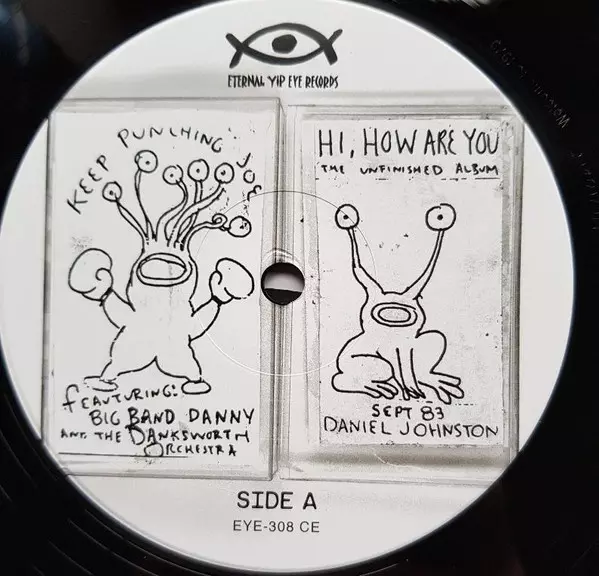 ETERNAL YIP EYE RECORDS
KEEP PUNCHING JOE
FEAUTURING:
BIG BAND DANNY
AND THE DANKSWORTH
ORCHESTRA
HI, HOW ARE YOU
THE UNFINISHED ALBUM
SEPT 83
DANIEL JOHNSTON
SIDE A
EYE-308 CE